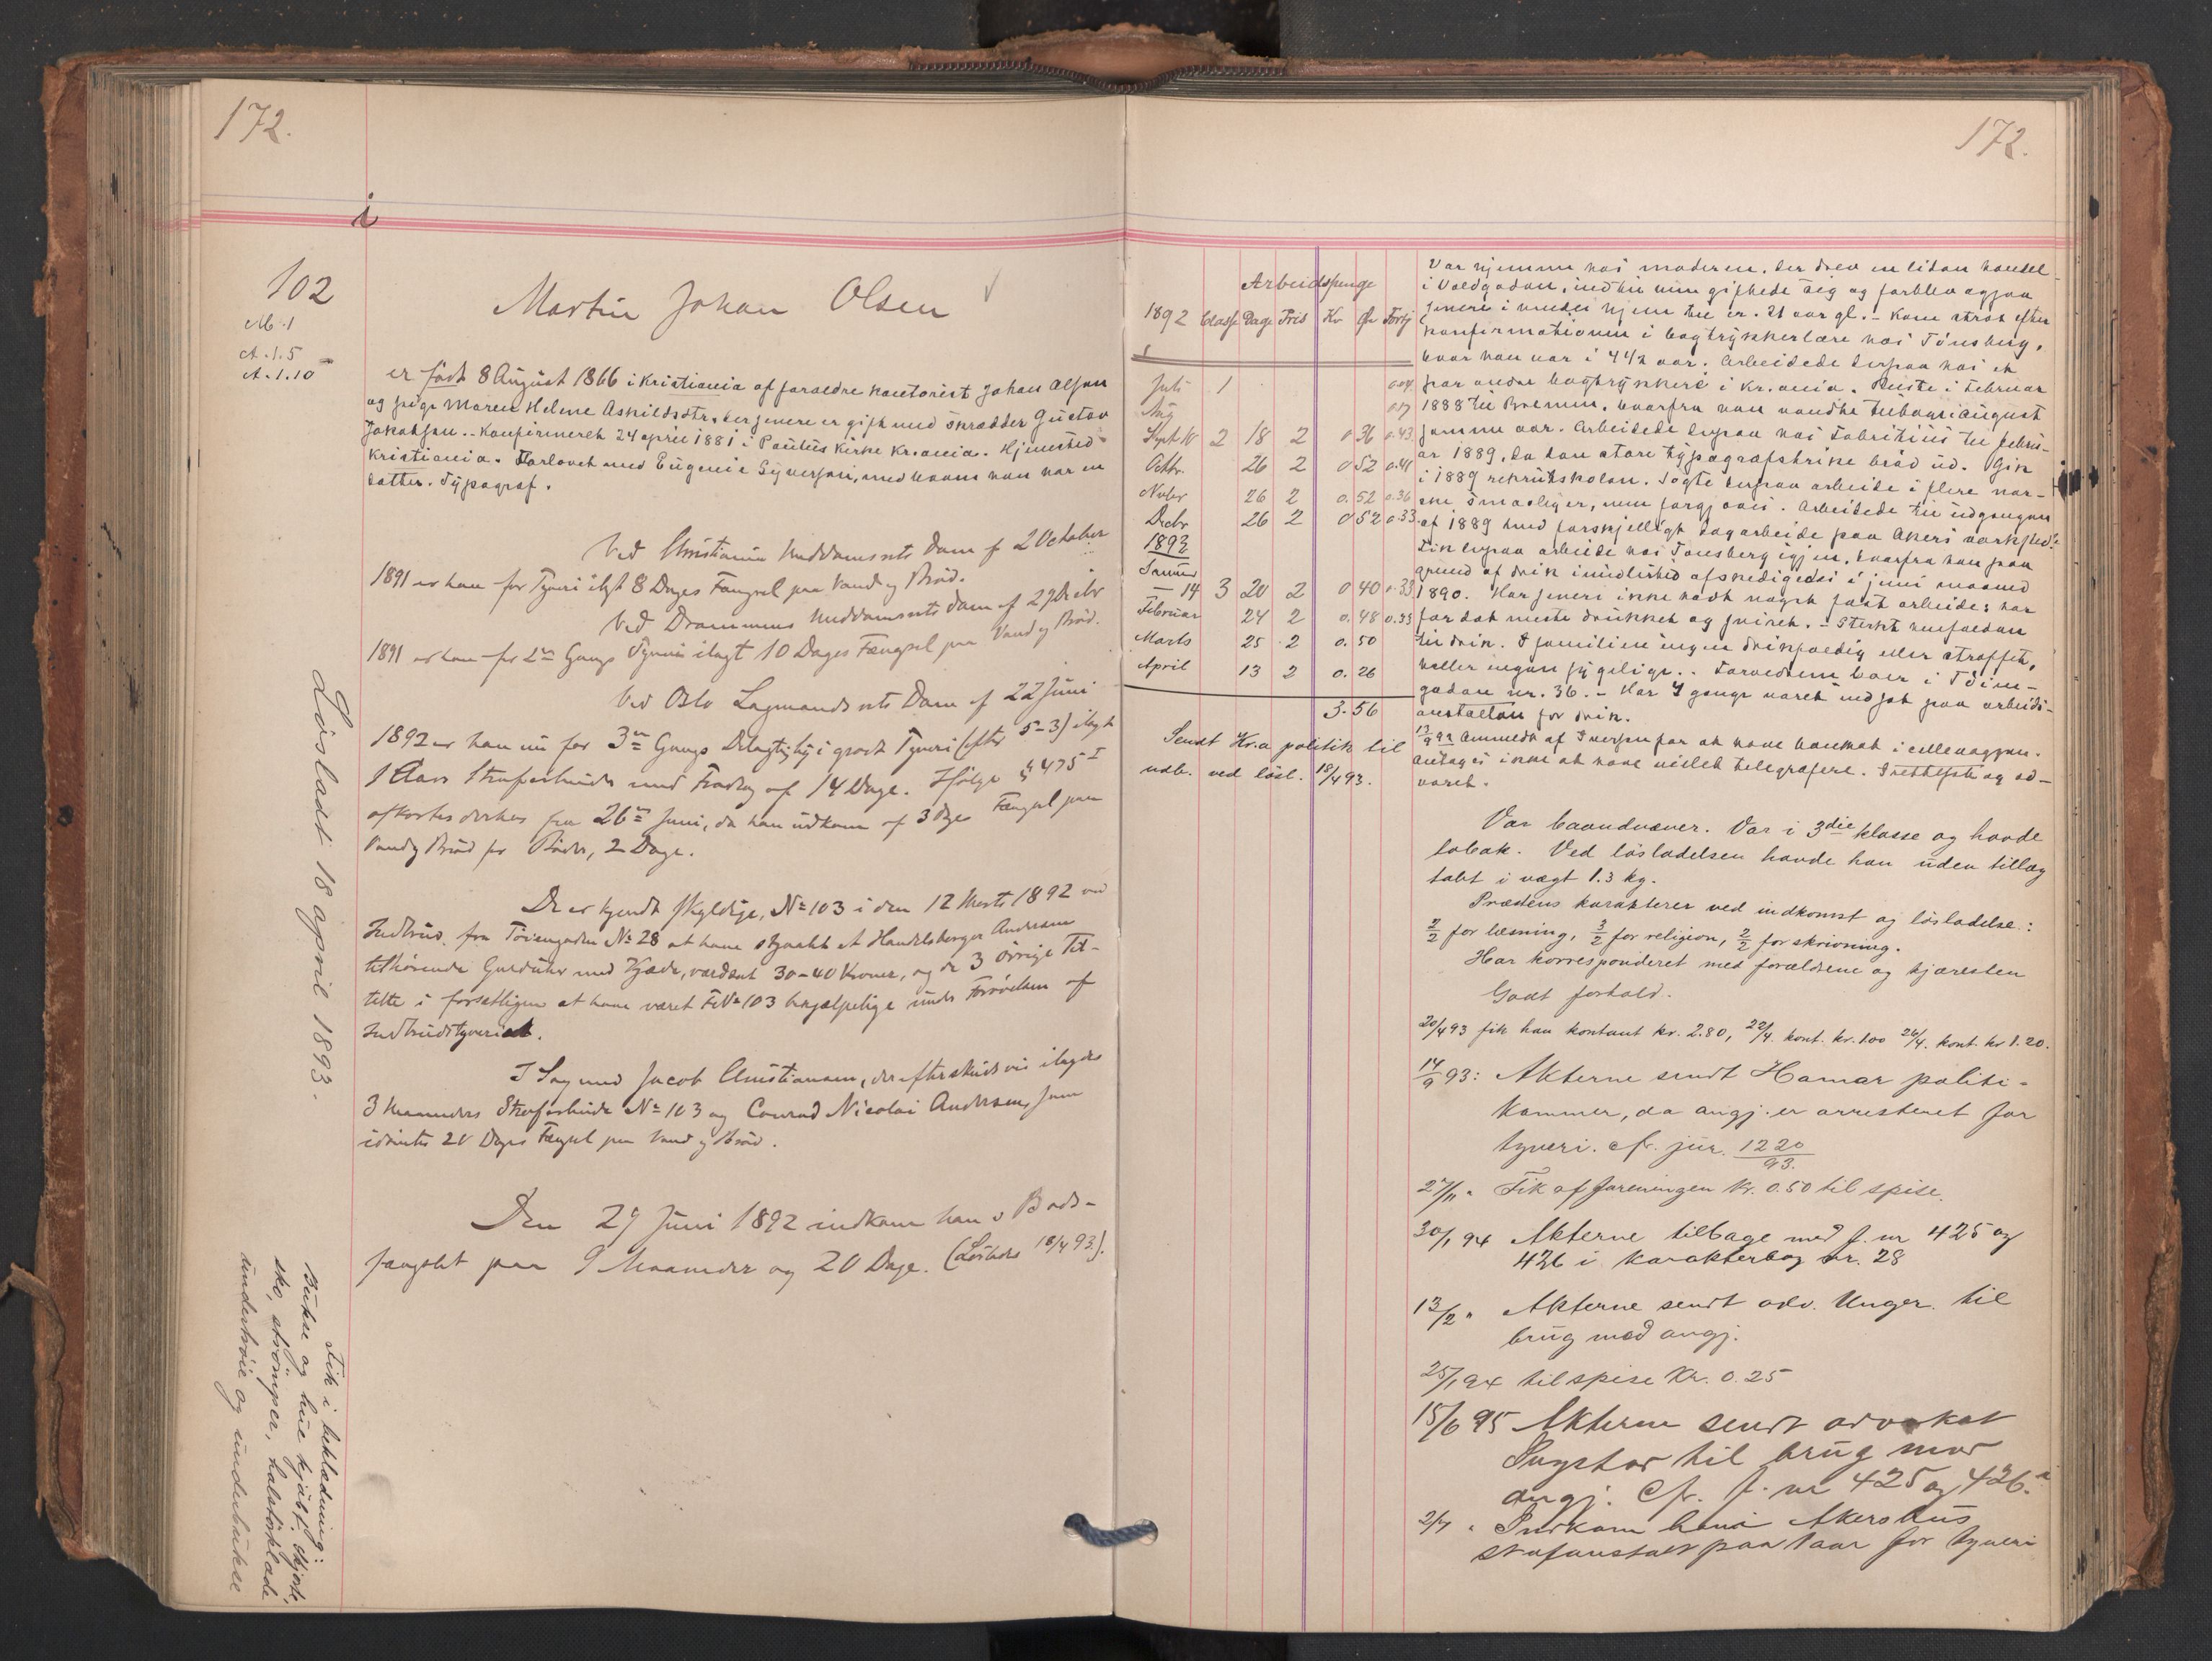 172.
102
M. 1
A. 1.5
A. 1.10
Martin Johan Olsen
er født 8 August 1866 i Kristiania af forældre kontorist Johan Olsen
og pige Maren Helene Askildsdtr, der senere er gift med skrædder Gustav
Jakobsen. - Konfirmeret 24 april 1881 i Paulus kirke Kr.ania. Hjemsted
Kristiania. Forlovet med Eugenie Syversen, med hvem han har en
datter. Typograf.
Ved Christiania Meddomsrets Dom af 2 October
1891 er han for Tyveri ilagt 8 Dages Fængsel paa Vand og Brød.
Ved Drammens Meddomsrets Dom af 27 Decbr
1891 er han for 2den Gangs Tyveri ilagt 10 Dages Fængsel paa Vand og Brød.
Ved Oslo Lagmandsrets Dom af 22 Juni
1892 er han nu for 3die Gangs Delagtighed i groft Tyveri (efter 5-3) ilagt
1 Aars Strafarbeide med Fradrag af 14 Dage. Ifølge § 475 I
afkortes derhos fra 26de Juni, da han udkom af 3 Dages Fængsel paa
Vand og Brød for Bøder, 2 Dage.
De er kjendt skyldige, No 103 i den 12 Marts 1892 ved
Indbrud fra Tøiengaden No 28 at have stjaalet et Handelsborger Andersen
tilhørende Gulduhr med Kjæde, værdsat 30-40 Kroner, og de 3 øvrige Til-
talte i forsætligen at have været No 103 behjælpelige under Forøvelsen af
Indbrudstyveriet.
I Sag med Jacob Christiansen, der efterskudsvis ilagdes
3 Maaneders Strafarbeide No 103 og Conrad Nicolai Andersen, som
idømtes 20 Dages Fængsel paa Vand og Brød.
Den 29 Juni 1892 indkom han i Bods-
fængslet paa 9 Maaneder og 20 Dage. (Løslades 18/4 93).
Løsladt 18 april 1893.
Fik i beklædning:
Bukse og hue kjøbt. skjorte,
sko, strømper, halstørklæde
undertrøie og underbukse
172.
Arbeidspenge
1892 Classe Dage Fris Kr Øre Fortj
Juli 1 0.04
Aug 0.17
Sept 10 2 18 2 0 36 0.43
Octbr. 26 2 0 52 0.41
Novbr 26 2 0. 52 0.36
Decbr 26 2 0 52 0.33
1893
Januar
— 14 3 20 2 0 40 0.33
Februar 24 2 0. 48 0.33
Marts 25 2 0. 50
April 13 2 0. 26
3.56
Sendt Kr.a politik til
udb. ved løsl. 18/4 93.
Var hjemme hos moderen, der drev en liden handel
i Voldgaden, indtil hun giftede sig og forblev ogsaa
senere i undes hjem til er. 21 aar gl. - Kom strax efter
konfirmationen i bogtrykkerlære hos Tønsberg,
hvor han var i 4 1/2 aar. Arbeidede derpaa hos et
par andre bogtrykkere i Kr.ania. Reiste i Februar
1888 til Bremen, hvorfra han vendte tilbage i august
samme aar. Arbeidede derpaa hos Fabritius til febru-
ar 1889, da den store typografstrike brød ud. Gik
i 1889 rekrutskolen. Søgte derpaa arbeide i flere nor-
ske smaabyer, men forgjæves. Arbeidede til udgangen
af 1889 med forskjelligt dagarbeide paa Akers værksted.
Fik derpaa arbeide hos Tønsberg igjen, hvorfra han paa
grund af drik imidlertid afskedigedes i juni maaned
1890. Har senere ikke havt noget fast arbeide; har
for det meste drukket og sviret. - Sterkt henfalden
til drik. I familien ingen drikfældig eller straffet,
heller ingen sygelige. Forældrene boer i Tøien-
gaden nr. 36. - Har 4 gange været indsat paa arbeids-
anstalten for drik.
12/9 92 Anmeldt af Iversen for at have banket i cellevæggen.
Antages ikke at have villet telegrafere. Irettesat og ad-
varet.
Var baandvæver. Var i 3die klasse og havde
tobak. Ved løsladelsen havde han uden tillæg
tabt i vægt 1.3 kg.
Prædens karakterer ved indkomst og løsladelse:
2/2 for læsning, 3/2 for religion, 2/2 for skrivning.
Har korresponderet med forældrene og kjæresten
Godt forhold.
20/4 93 fik han kontant kr. 2.80, 22/4. kont. kr. 1.00 26/4. kont. kr 1.20.
14/9 93: Akterne sendt Hamar politi-
kammer, da angj. er arresteret for
tyveri. cfr. jur. 1220/93.
27/11 " Fik af foreningen Kr. 0.50 til spise.
30/1 94 Akterne tilbage med f. nr 425 og
426 i karakterbog nr. 28
13/2 " Akterne sendt adv. Unger til
brug med angj.
25/1 94 til spise Kr. 0.25
15/6 95 Akterne sendt advokat
til brug mod
angj. Cfr. f. nr 425 og 426.
2/7 " Indkom han i Akershus
strafanstalt paa 1 aar for tyveri